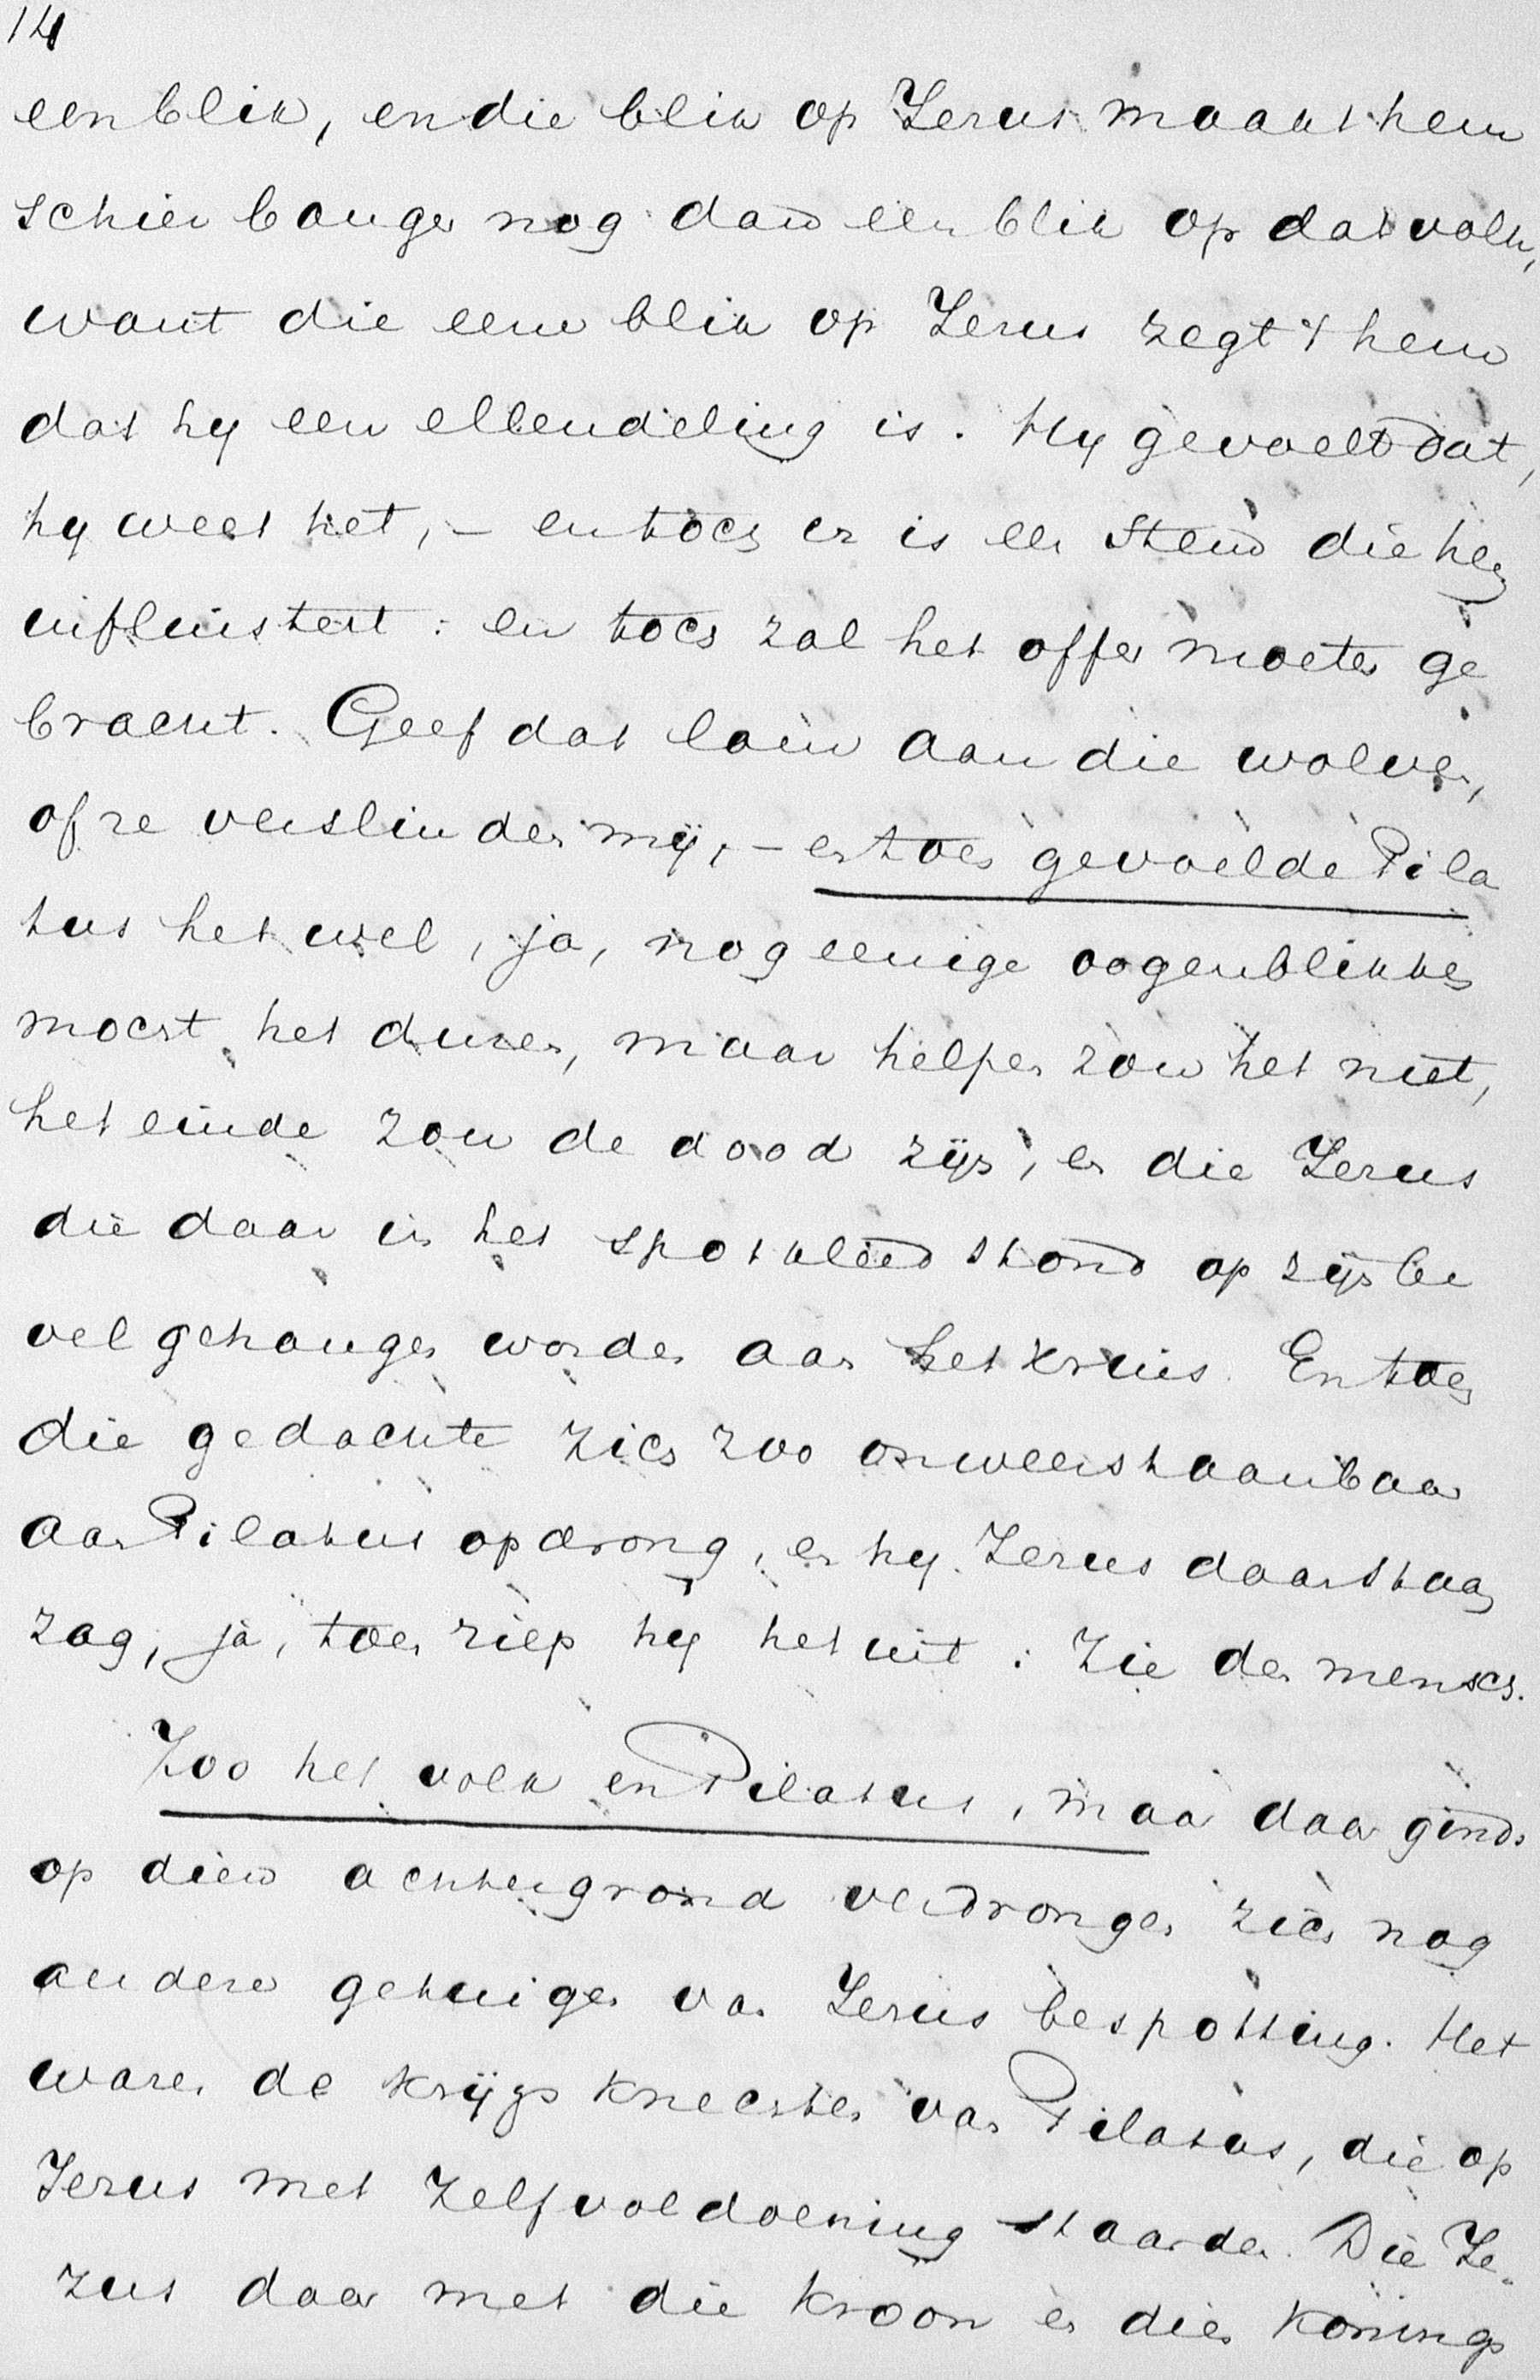 14
een blik, en die blik op Jezus maakt hem
schier banger nog dan een blik op dat volk,
want die eene blik op Jezus zegt 't hem
dat hy een ellendeling is. Hy gevoelt dat,
hy weet het, – en toch er is een stem die hem
influistert: en toch zal het offer moeten ge
bracht. Geef dat lam aan die wolven,
of ze verslinden mij, – en toen gevoelde Pila
tus het wel, ja, nog eenige oogenblikken
moest het duren, maar helpen zou het niet,
het einde zou de dood zijn, en die Jezus
die daar in het spotkleed stond op zijn be
vel gehangen worden aan het kruis. En toen
die gedachte zich zoo onweerstaanbaar
aan Pilatus opdrong, en hy Jezus daar staan
zag, ja, toen riep hij het uit: Zie den mensch.
Zoo het volk en Pilatus, maar daar ginds
op dien achtergrond verdrongen zich nog
andere getuigen van Jezus bespotting. Het
waren de krijgsknechten van Pilatus, die op
Jezus met zelfvoldoening staarden. Die Je-
zus daar met die kroon en dien konings